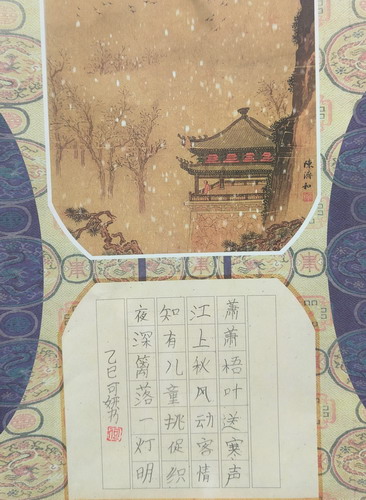 陳濟和
蕭蕭梧叶送寒声
江上秋风动客情
知有儿童挑促织
夜深篱落一灯明
乙巳可